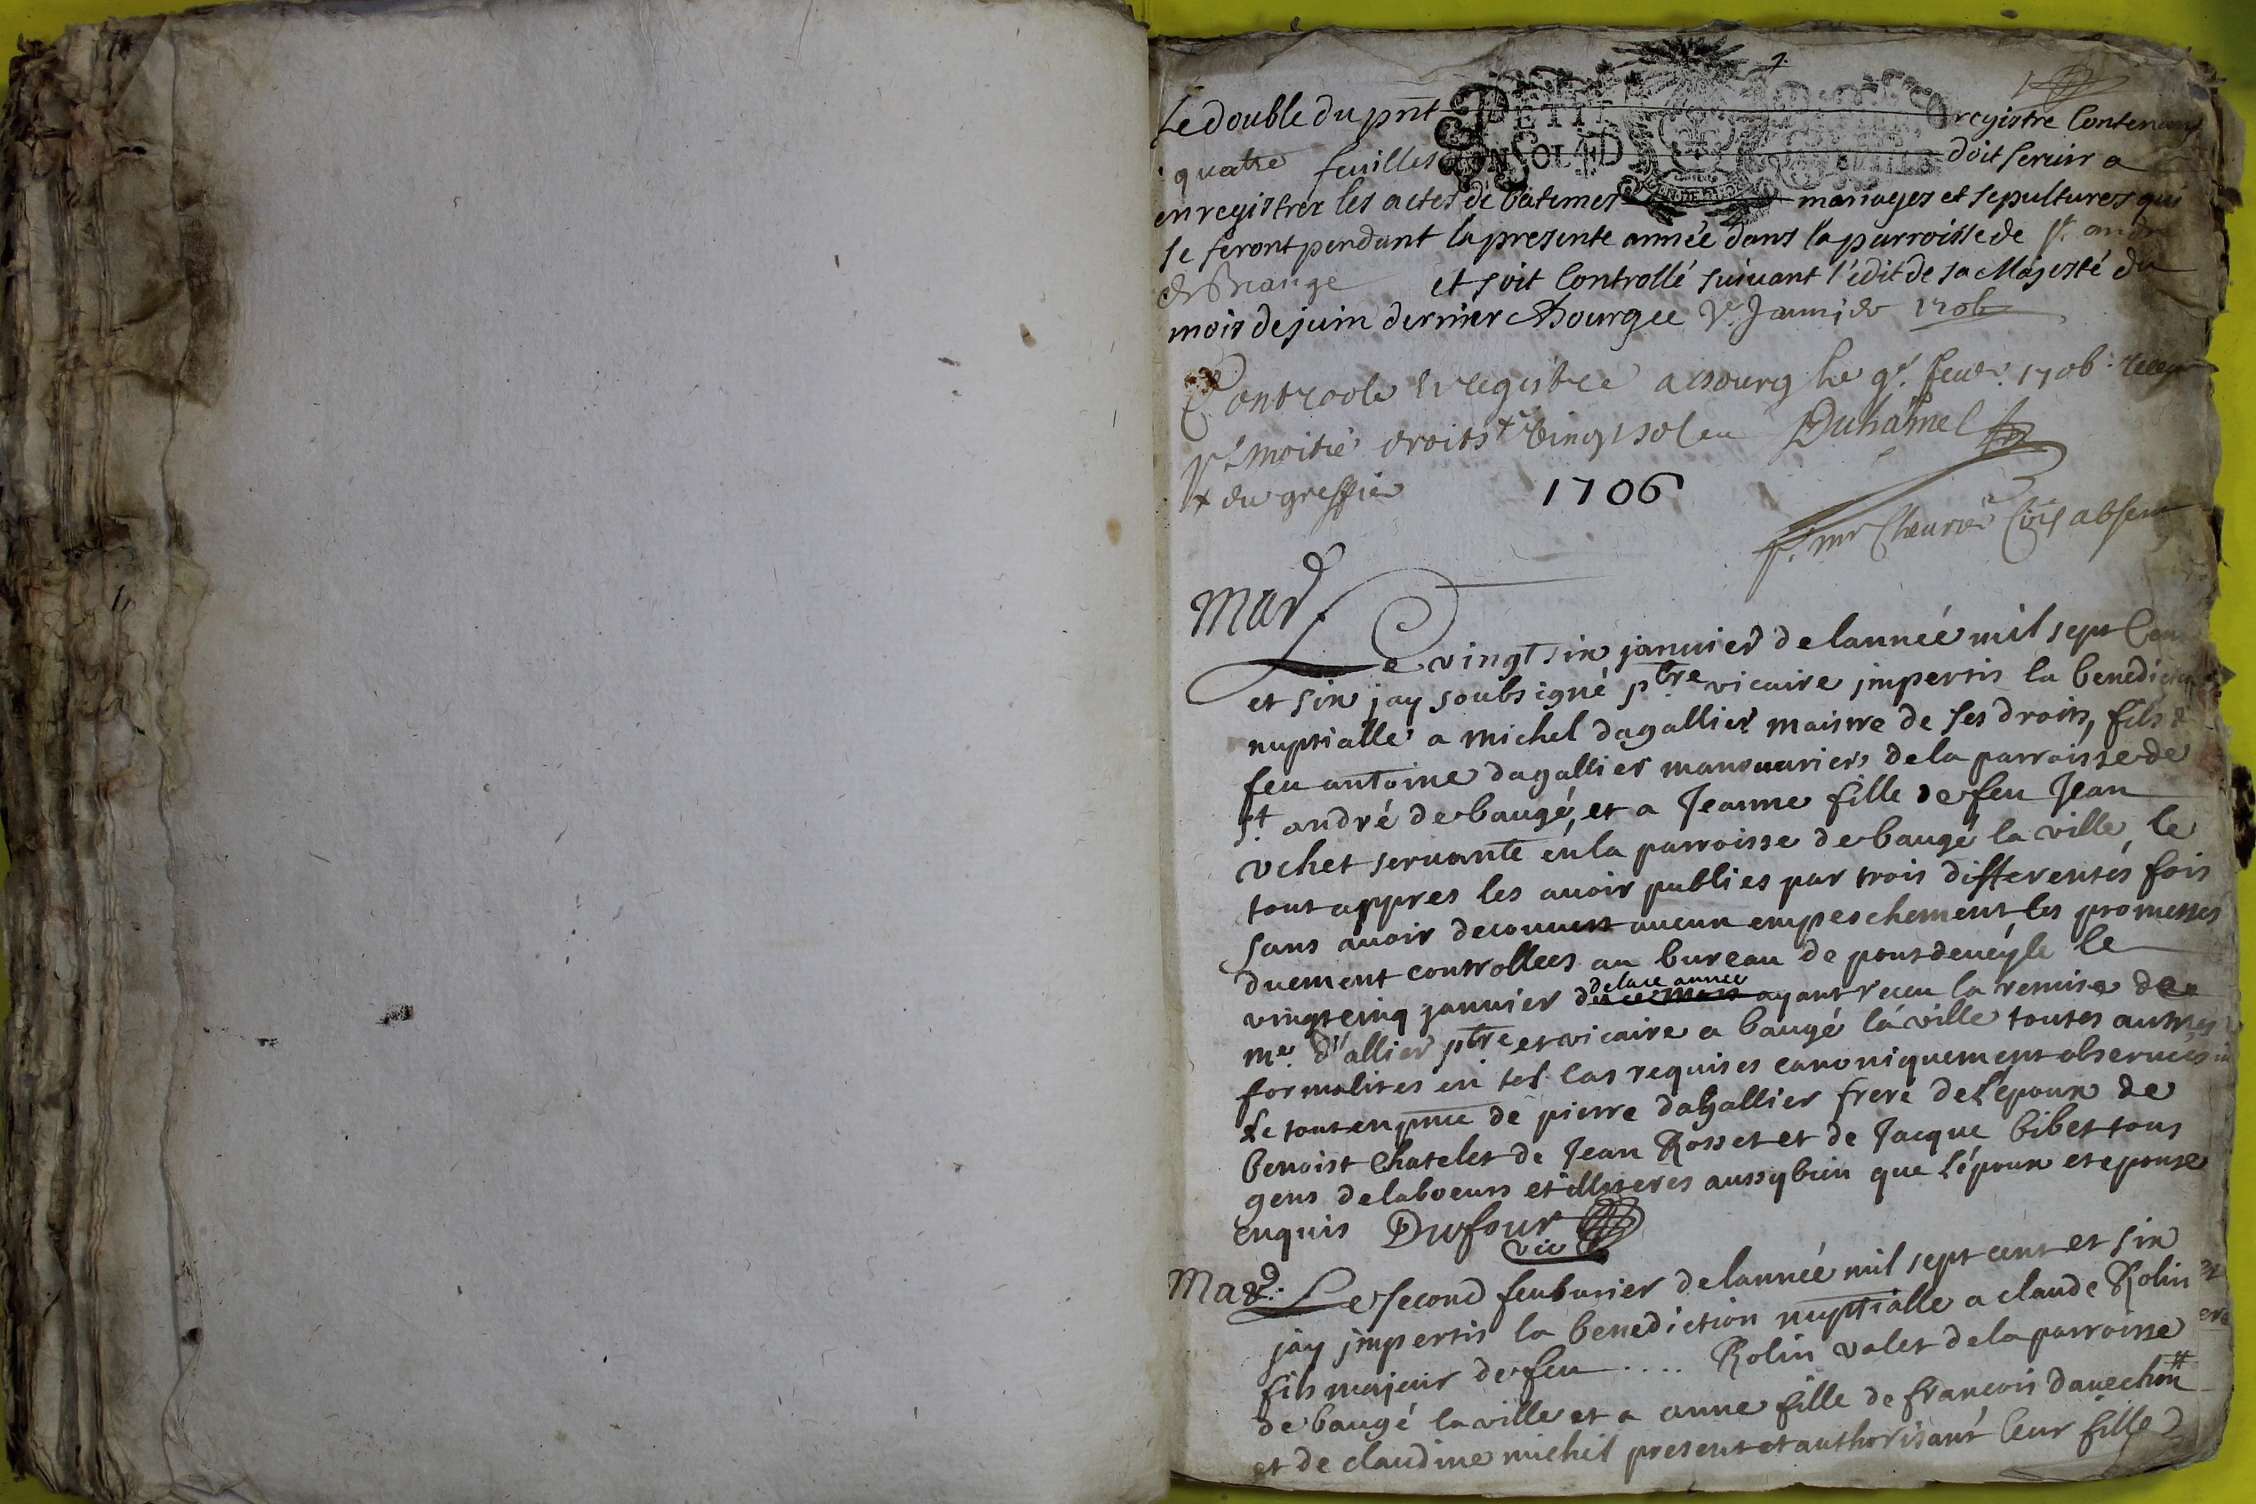 1.
Le double du pnt registre Contenant
quatre feuilles doit seruir a
enregistrer les actes de batemes mariages et sepultures qui
se feront pendant la presente année dans la parroisse de st. andre
et soit Controllé suiuant l'édit de sa Majesté du
mois de juin dernier a bourg ce 1706
PETIT
UN SOL 4 D
Controole Enregistré a bourg le 9e. feur. 1706.
moitié droits + Vingt sol Duhamel
+ du greffier
1706
p. mr absent
Mar
Le vingt six januier de lannée mil sept Cen
et six jay soubsigné ptre vicaire jmpertis la benedict
nuptialle a michel dagallier maistre de ses droits, fils d
feu antoine dagallier manouurier de la parroisse de
st andré de baugé, et a Jeanne fille de feu Jean
vchet seruante en la parroisse de baugé la ville, le
tout appres les auoir publies par trois differentes fois
sans auoir decouuert aucun empeschement les promesses
duement controllees au bureau de pont de ueyle le
delace année
vingt cinq januier du ce mois ayant receu la remise de
mr. d'allier ptre et vicaire a baugé la ville toutes autres
formalites en tel cas requises canoniquement obseruees
Le tout en pnce de pierre dagallier frere de l'epoux de
benoist Chatelet de Jean Rosset et de Jacque bibet tous
gens de laboeurs et illiteres aussy bien que l'époux et epouse
enquis Dufour
vic
Mar.
Le second feuburier de lannée mil sept cent et six
jay jmpertis la benediction nuptialle a claude Rolin
fils majeur de feu .... Rolin valet de la parroisse
de baugé la ville et a anne fille de françois
et de claudine michel present et authorisant leur fille